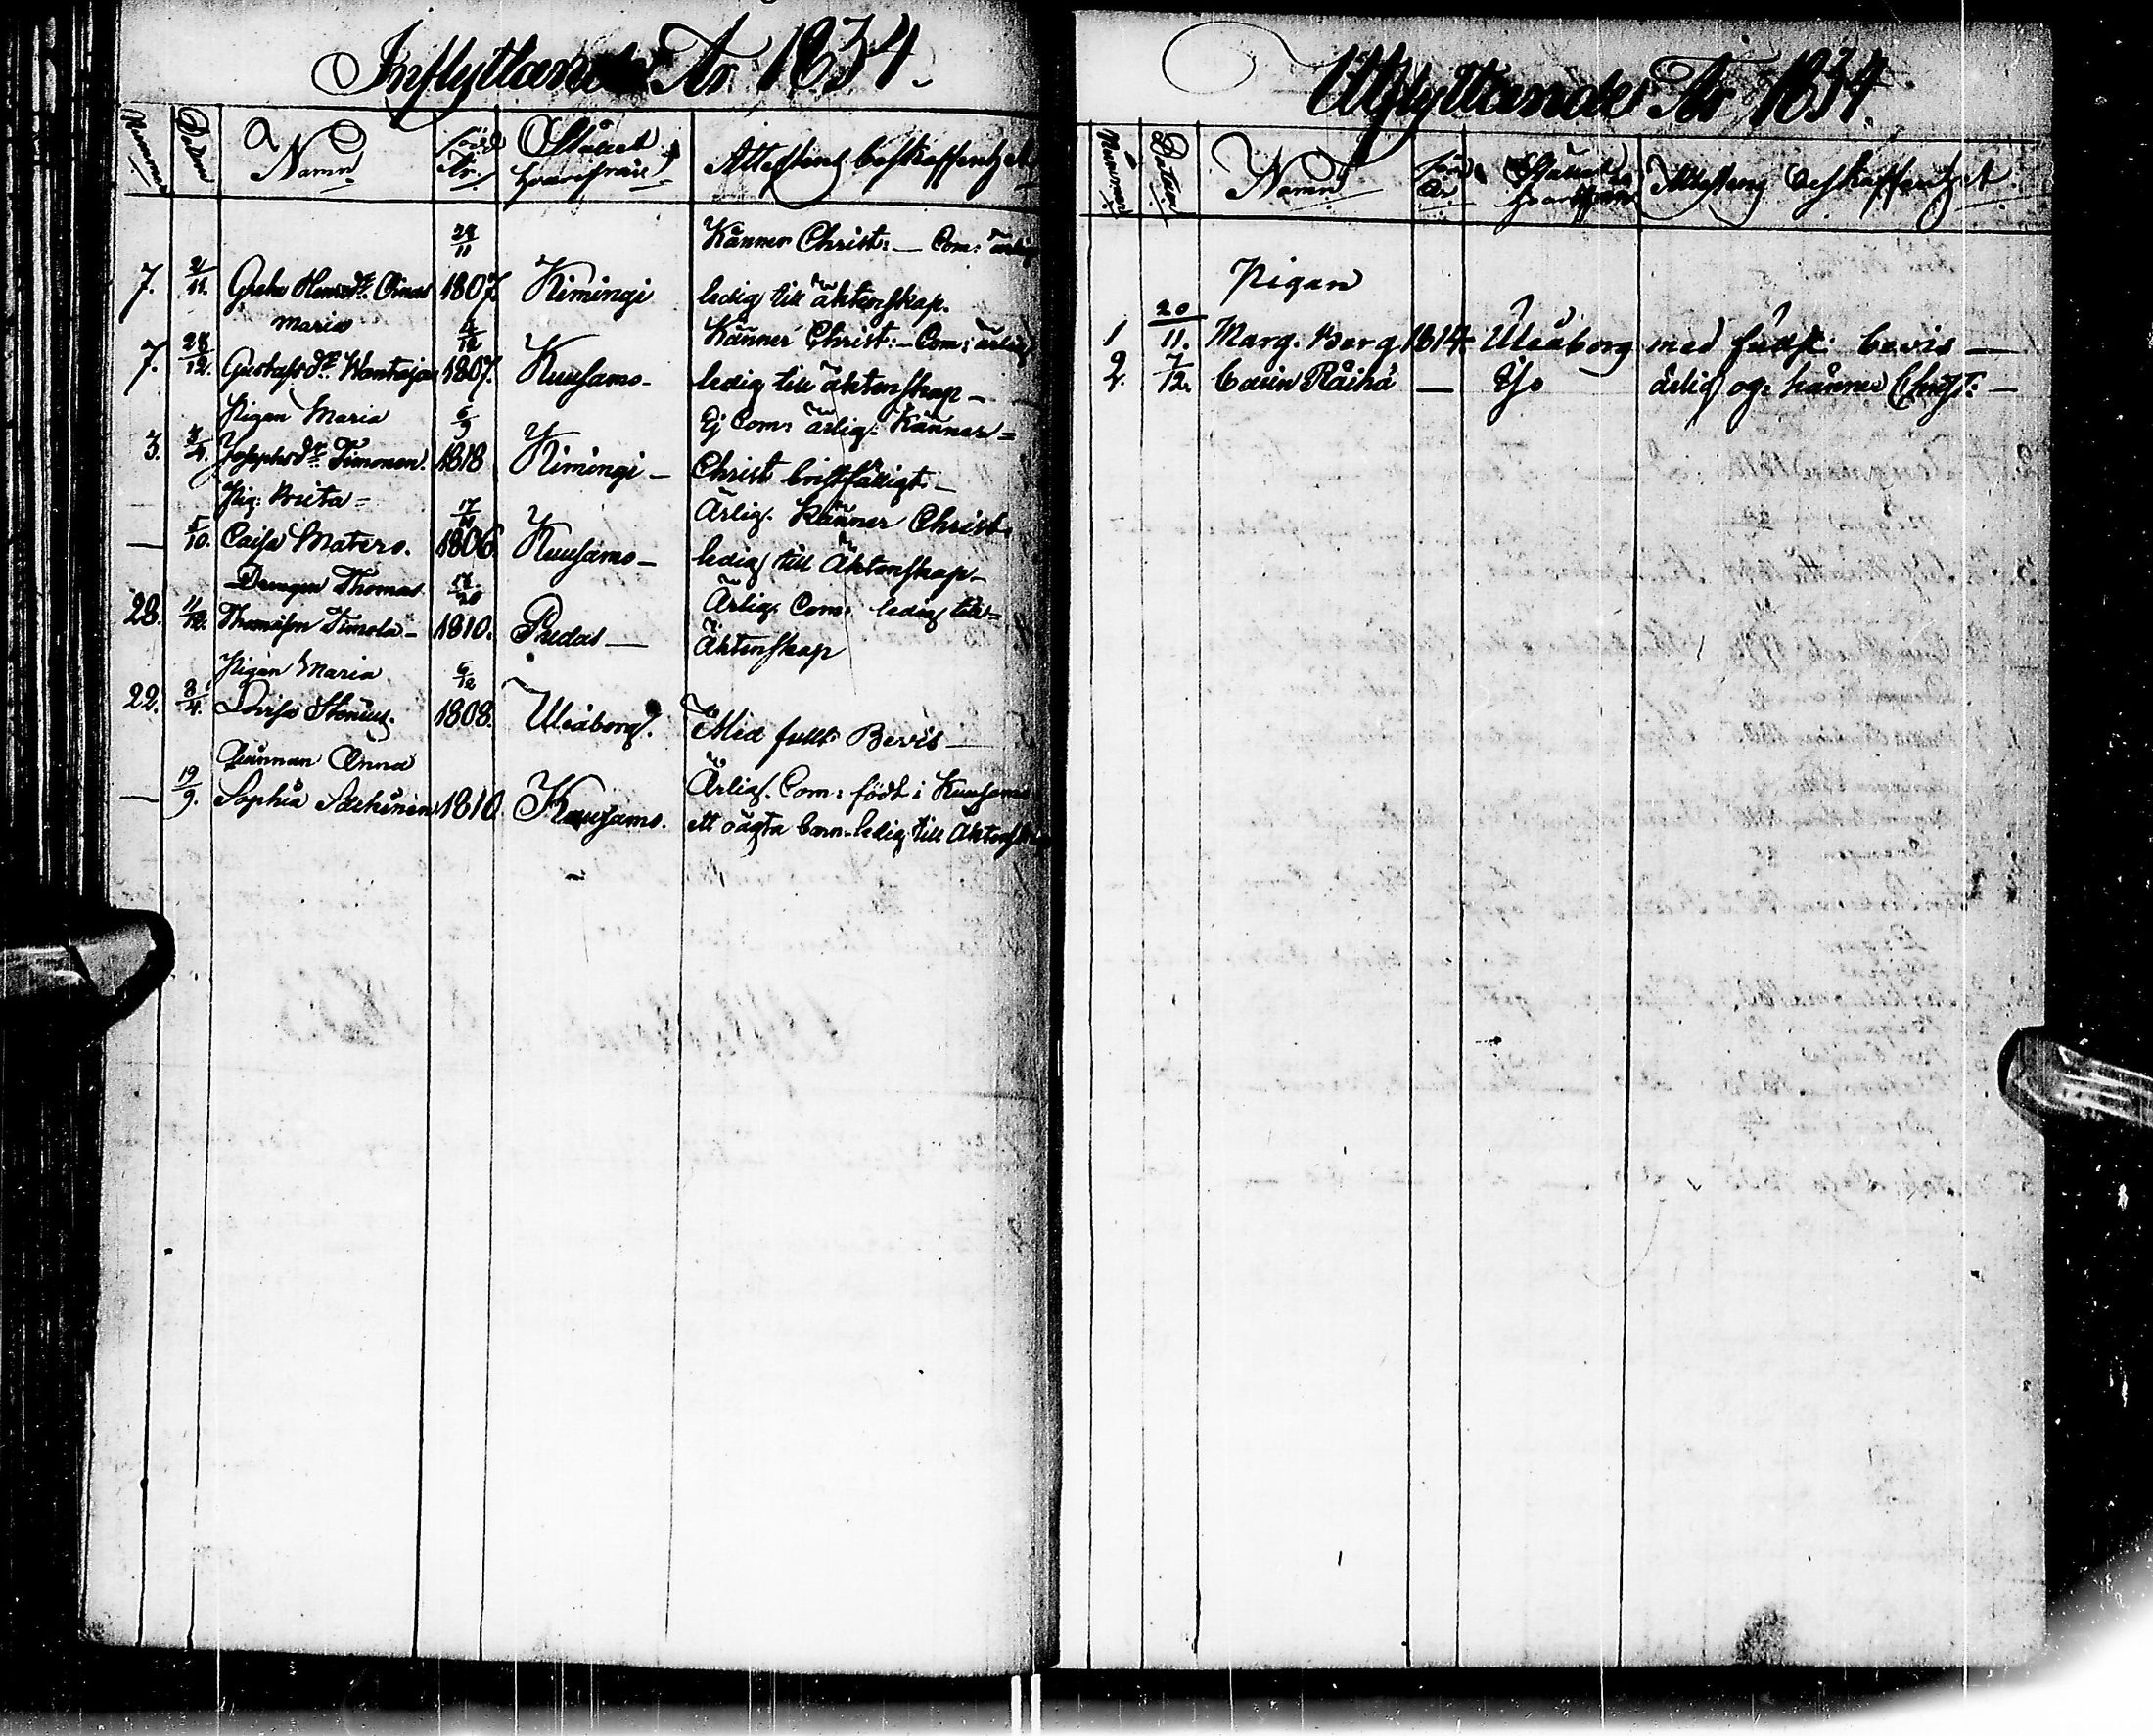 Inflyttande År 1834.
Nummer Datum Namn född År. Stället hvarifrån Attestens beskaffenhet
29/11 Känner Christ: — Com: ärlig
7. 2/11. Greta Henr.dr Oinas 1807. Kimingi ledig till äktenskap.
Maria 4/12 Känner Christ: — Com: ärlig
7. 28/12. Gustafsdr Hantaja 1807. Kuusamo — ledig till äktenskap —
Pigan Maria 6/9 Ej Com: ärlig. Känner =
3. 3/4. Josephsdr Timonen. 1818 Kimingi — Christ. bristfäligt. —
Pig: Brita = 17/11 Ärlig. Känner Christ.
— 5/10. Caisa Matero. 1806. Kuusamo — ledig till Äktenskap —
Drengen Thomas 12/20 Ärlig. Com: ledig till =
28. 11/12. Thomasson Timola — 1810. Pudas — Äktenskap
Pigan Maria 6/12
22. 3/4. Lovisa Stenius. 1808. Uleåborg. Med fullt Bevis —
Qvinnan Anna Ärlig. Com: född i Kuusamo
— 19/9. Sophia Särkinen 1810 Kuusamo. ett oägta barn - ledig till Äktenskap
Utflyttande År 1834.
Nummer Datum Namn född År. Stället Attestens beskaffenhet
Pigan
1 20/11. Marg. Berg 1814. Uleåborg med fullst: bevis —
2. 7/12. Carin Räihä — Ijo ärlig og känner Christ: —